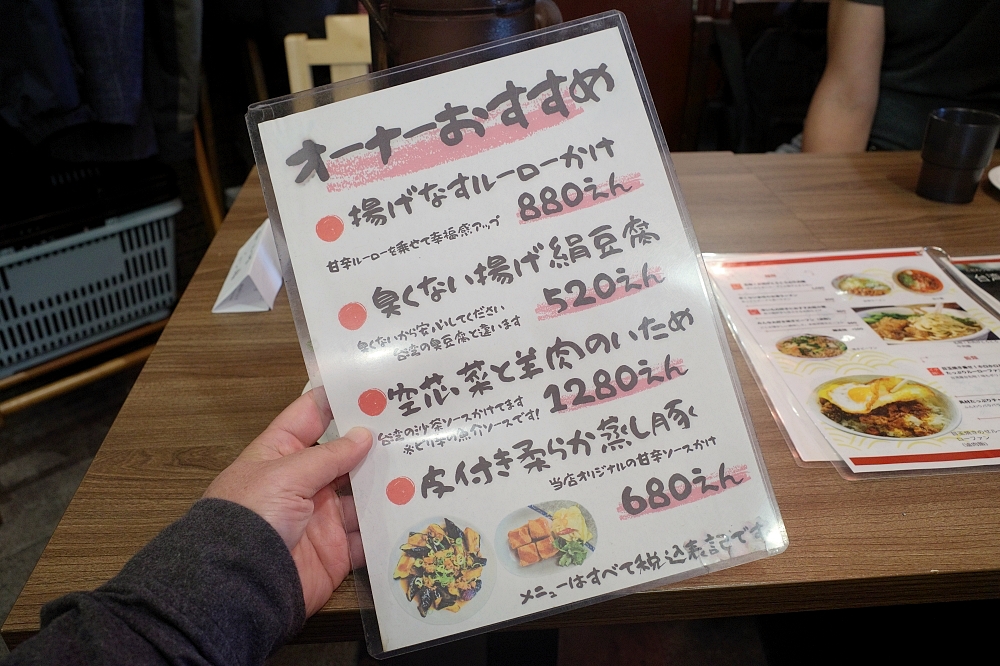 オーナーおすすめ
揚げなすルーローかけ
880えん
甘辛ルーローを乗せて幸福感アップ
臭くない揚げ絹豆腐
520えん
臭くないから安心してください
台湾の臭豆腐と違います
空芯菜と羊肉のいため
1280えん
台湾の沙茶ソースかけてます
ピリ辛の魚介ソースです!
皮付き柔らか蒸し豚
当店オリジナルの甘辛ソースかけ
680えん
メニューはすべて税込表記です